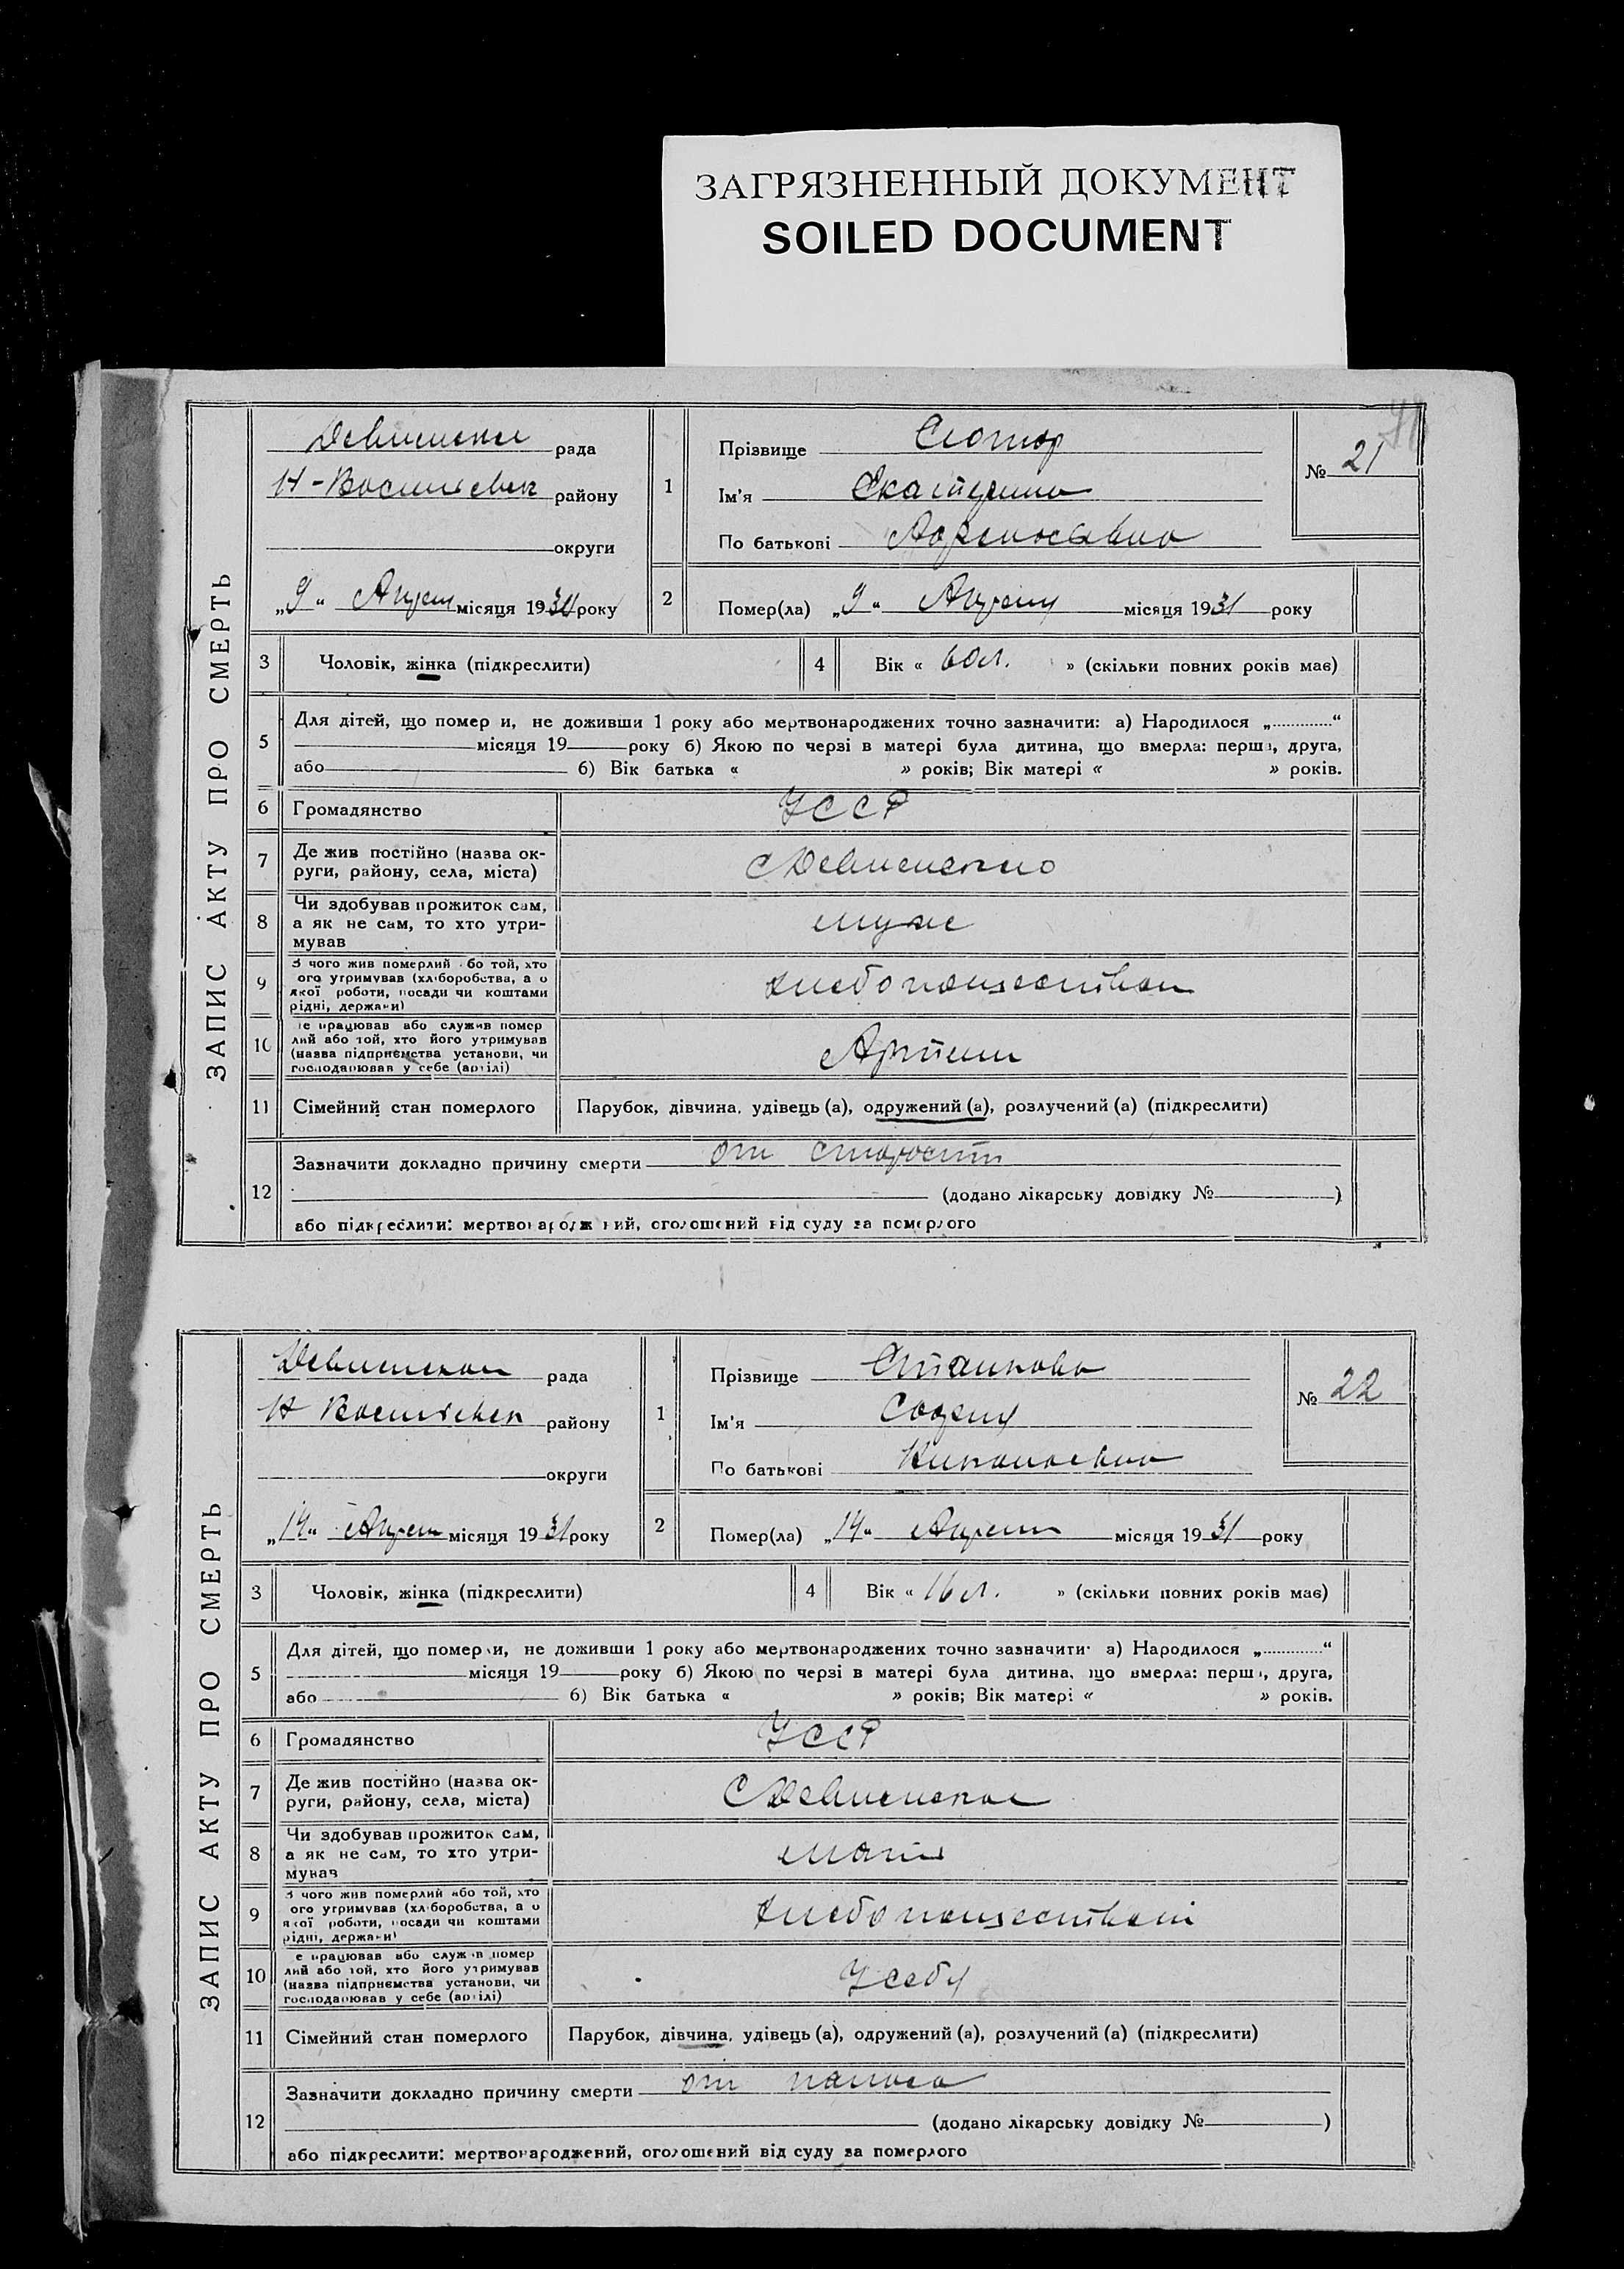 ЗАГРЯЗНЕННЫЙ ДОКУМЕНТ
SOILED DOCUMENT
ЗАПИС АКТУ ПРО СМЕРТЬ
рада
району
округи
„9“ Апреля місяця 1931 року
1
Прізвище
Ім'я Екатерина
По батькові
№ 21
2
Помер(ла) „9“ Апреля місяця 1931 року
3 Чоловік, жінка (підкреслити)
4 Вік « 60 л. » (скільки повних років має)
5
Для дітей, що помер и, не доживши 1 року або мертвонароджених точно зазначити: а) Народилося „ “
місяця 19 року б) Якою по черзі в матері була дитина, що вмерла: перша, друга,
або б) Вік батька « » років; Вік матері « » років.
6 Громадянство УССР
7 Де жив постійно (назва ок-
руги, району, села, міста)
8 Чи здобував прожиток сам,
а як не сам, то хто утри-
мував
муж
9 З чого жив померлий або той, хто
ого утримував (хліборобства, а о
якої роботи, посади чи коштами
рідні, держави)
10 е працював або служив помер
лий або той, хто його утримував
(назва підприємства установи, чи
господарював у себе (артілі)
Артели
11 Сімейний стан померлого Парубок, дівчина, удівець (а), одружений (а), розлучений (а) (підкреслити)
12
Зазначити докладно причину смерти от старости
(додано лікарську довідку № )
або підкреслити: мертвонароджений, оголошений від суду за померлого
ЗАПИС АКТУ ПРО СМЕРТЬ
рада
району
округи
„14“ Апреля місяця 1931 року
1
Прізвище
Ім'я София
По батькові Николаевна
№ 22
2
Помер(ла) „14“ Апреля місяця 1931 року
3 Чоловік, жінка (підкреслити)
4 Вік « 16 л. » (скільки повних років має)
5
Для дітей, що померли, не доживши 1 року або мертвонароджених точно зазначити: а) Народилося „ “
місяця 19 року б) Якою по черзі в матері була дитина, що вмерла: перша, друга,
або б) Вік батька « » років; Вік матері « » років.
6 Громадянство УССР
7 Де жив постійно (назва ок-
руги, району, села, міста)
8 Чи здобував прожиток сам,
а як не сам, то хто утри-
мував
мать
9 З чого жив померлий або той, хто
ого утримував (хліборобства, а о
якої роботи, посади чи коштами
рідні, держави)
10 е працював або служив помер
лий або той, хто його утримував
(назва підприємства установи, чи
господарював у себе (артілі)
У себя
11 Сімейний стан померлого Парубок, дівчина, удівець (а), одружений (а), розлучений (а) (підкреслити)
12
Зазначити докладно причину смерти от
(додано лікарську довідку № )
або підкреслити: мертвонароджений, оголошений від суду за померлого